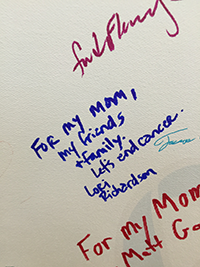 For my mom,
my friends
+ family.
Let's end cancer.
Lori
Richardson
For my Mom
Matt Go